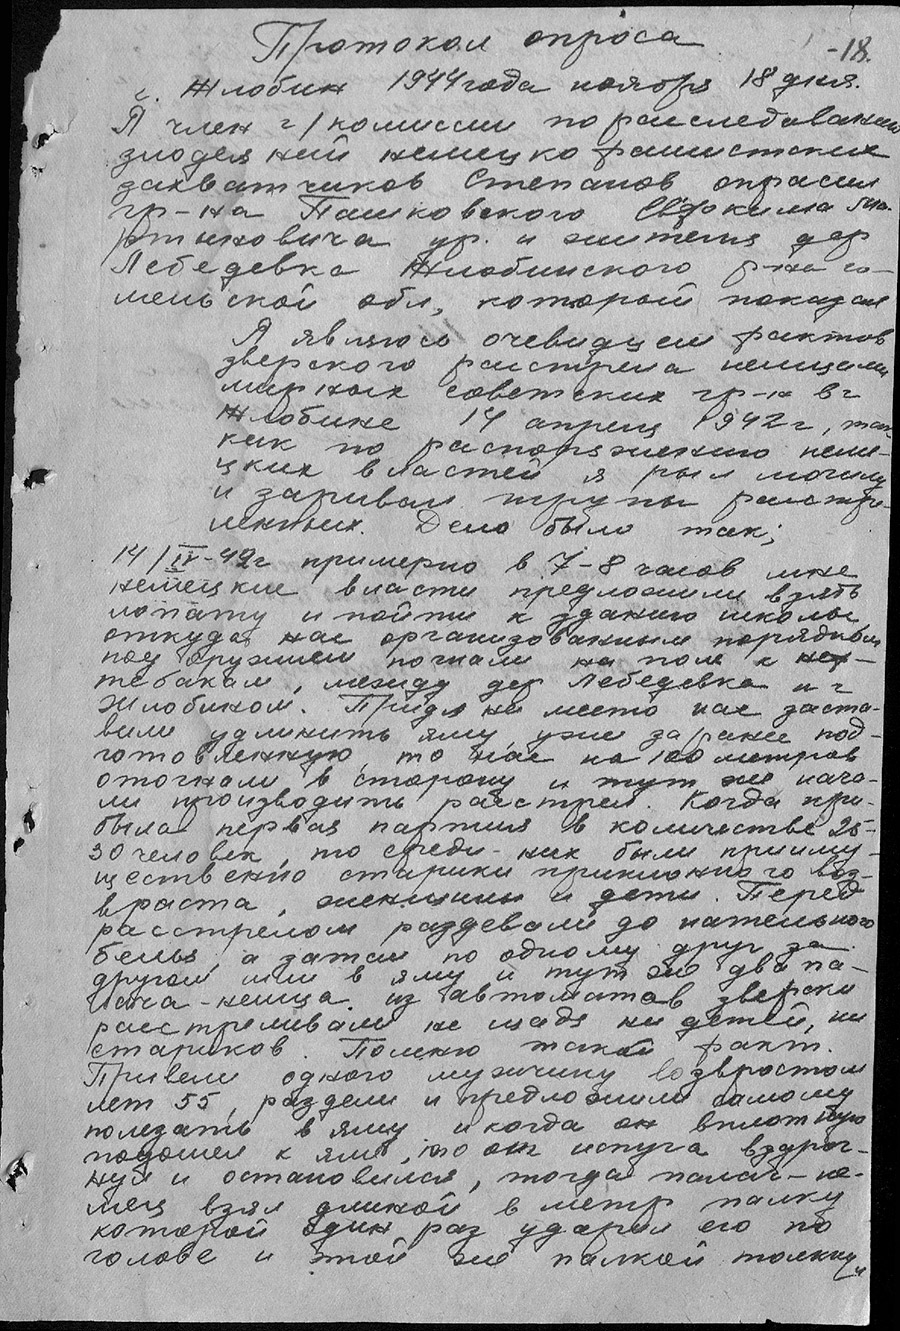 -18.
Протокол опроса
г. Жлобин 1944 года ноября 18 дня.
Я член г/комиссии по расследованию
злодеяний немецко фашистских
захватчиков Степанов опросил
гр-на Пашковского Евфокима Ма-
ртыновича ур. и жителя дер
Лебедевка Жлобинского р-на Го-
мельской обл, который показал
Я являюсь очевидцем фактов
зверского расстрела немцами
мирных советских гр-н в г
Жлобине 14 апреля 1942 г, так
как по распоряжению неме-
цких властей я рыл могилу
и зарывал трупы расстре-
лянных. Дело было так;
14/IV-42г примерно в 7-8 часов мне
немецкие власти предложили взять
лопату и пойти к зданию школы,
откуда нас организованным порядком
под оружием погнали на поле к
тебакам, между дер Лебедевка и г
Жлобином. Придя на место нас заста-
вили удлинить яму, уже заранее под-
готовленную, то нас на 100 метров
отогнали в сторону и тут же нача-
ли производить расстрел. Когда при-
была первая партия в количестве 25-
30 человек, то среди них были прииму-
щественно старики приклонного воз-
враста, женщины и дети. Перед
расстрелом раздевали до нательного
белья, а затем по одному друг за
другом шли в яму и тут же два па-
лача-немца из автоматов зверски
расстреливали не щадя ни детей, ни
стариков. Помню такой факт.
Привели одного мужчину возврастом
лет 55, раздели и предложили самому
полезать в яму и когда он вплотную
подошел к яме, то от испуга вздрог-
нул и остановился, тогда палач-не-
мец взял длиной в метр палку
которой один раз ударил его по
голове и этой же палкой толкнул